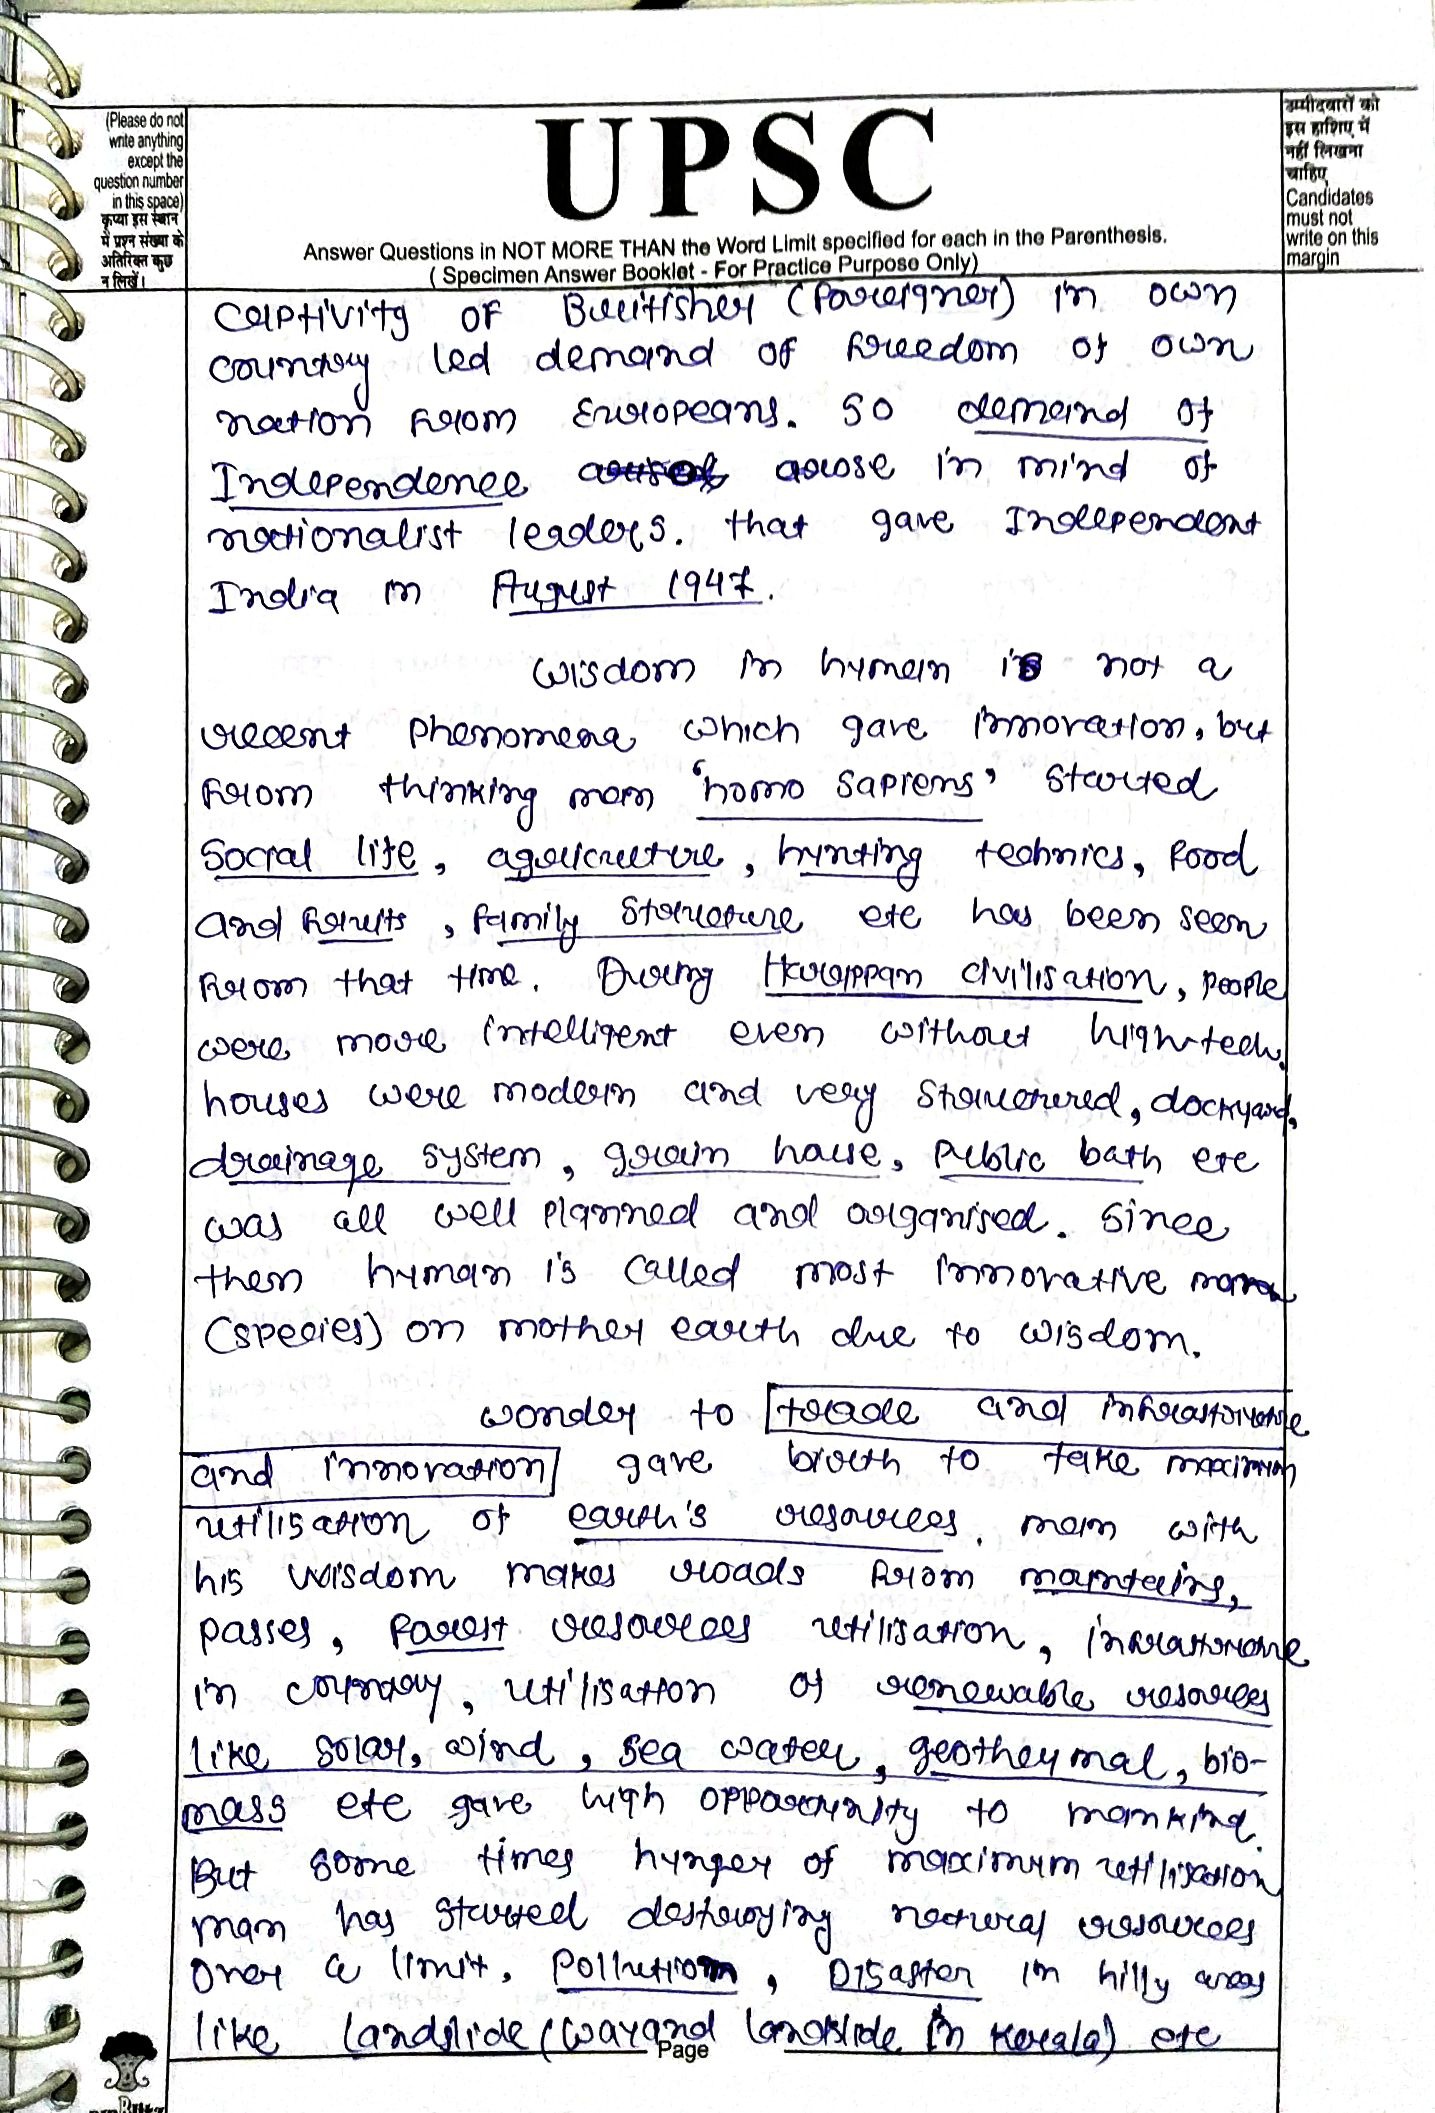 (Please do not
write anything
except the
question number
in this space)
कृप्या इस स्थान
में प्रश्न संख्या के
अतिरिक्त कुछ
न लिखें।
UPSC
Answer Questions in NOT MORE THAN the Word Limit specified for each in the Parenthesis.
( Specimen Answer Booklet - For Practice Purpose Only)
उम्मीदवारों को
इस हाशिए में
नहीं लिखना
चाहिए
Candidates
must not
write on this
margin
captivity of Britisher (foreigner) in own
country led demand of freedom of own
nation from Europeans. so demand of
Independence arose in mind of
nationalist leaders. that gave Independent
India in August 1947.
wisdom in human is not a
recent phenomena which gave innovation, but
from thinking man 'homo sapiens' started
social life, agriculture, hunting technics, food
and fruits, family structure etc has been seen
from that time. During Harappan civilisation, people
were more intelligent even without high-tech.
houses were modern and very structured, dockyard,
drainage system, grain house, public bath etc
was all well planned and organised. since
then human is called most innovative man
(species) on mother earth due to wisdom.
wonder to trade and infrastructure
and innovation gave birth to take maximum
utilisation of earth's resources. man with
his wisdom makes roads from mountains,
passes, forest resources utilisation, infrastructure
in country, utilisation of renewable resources
like solar, wind, sea water, geothermal, bio-
mass etc gave high opportunity to mankind.
But some times hunger of maximum utilisation
man has started destroying natural resources
over a limit. Pollution, Disaster in hilly areas
like landslide (Wayand landslide in Kerala) etc
Page